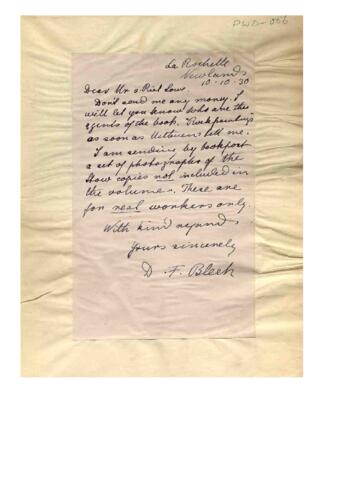 PWD-066
La Rochelle
Newlands
10-10-30
Dear Mr v Riet Lowe.
Don't send me any money. I
will let you know who are the
agents of the book. Rock paintings
as soon as Methuens tell me.
I am sending by bookpost
a set of photographs of the
Stow copies not included in
the volume. These are
for real workers only.
With kind regards
Yours sincerely
D. F. Bleek